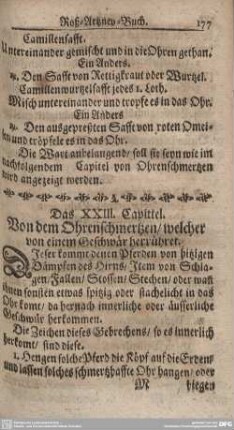 Roß-Artzney-Buch. 177
Camillensafft.
Untereinander gemischt und in die Ohren gethan.
Ein Anders.
Den Safft von Rettigkraut oder Wurtzel.
Camillenwurtzelsafft jedes 1. Loth.
Misch untereinander und tropfe es in das Ohr.
Ein Anders
Den ausgepreßten Safft von roten Omei-
und tröpfele es in das Ohr.
Die Wart anbelangend/ soll sie seyn wie im
nachfolgendem Capitel von Ohrenschmertzen
wird angezeiget werden.
Das XXIII. Capittel.
Von dem Ohrenschmertzen/ welcher
von einem Geschwär herrühret.
DIeser kommt denen Pferden von hitzigen
Dämpfen des Hirns/ Item von Schla-
gen/ Fallen/ Stossen/ Stechen/ oder wan
ihnen sonsten etwas spitzig oder stachelicht in das
Ohr komt/ da hernach innerliche oder äusserliche
Geschwär herkommen.
Die Zeichen dieses Gebrechens/ so es innerlich
herkomt/ sind diese.
1. Hengen solche Pferd die Köpf auf die Erden
und lassen solches schmertzhaffte Ohr hangen/ oder
M biegen